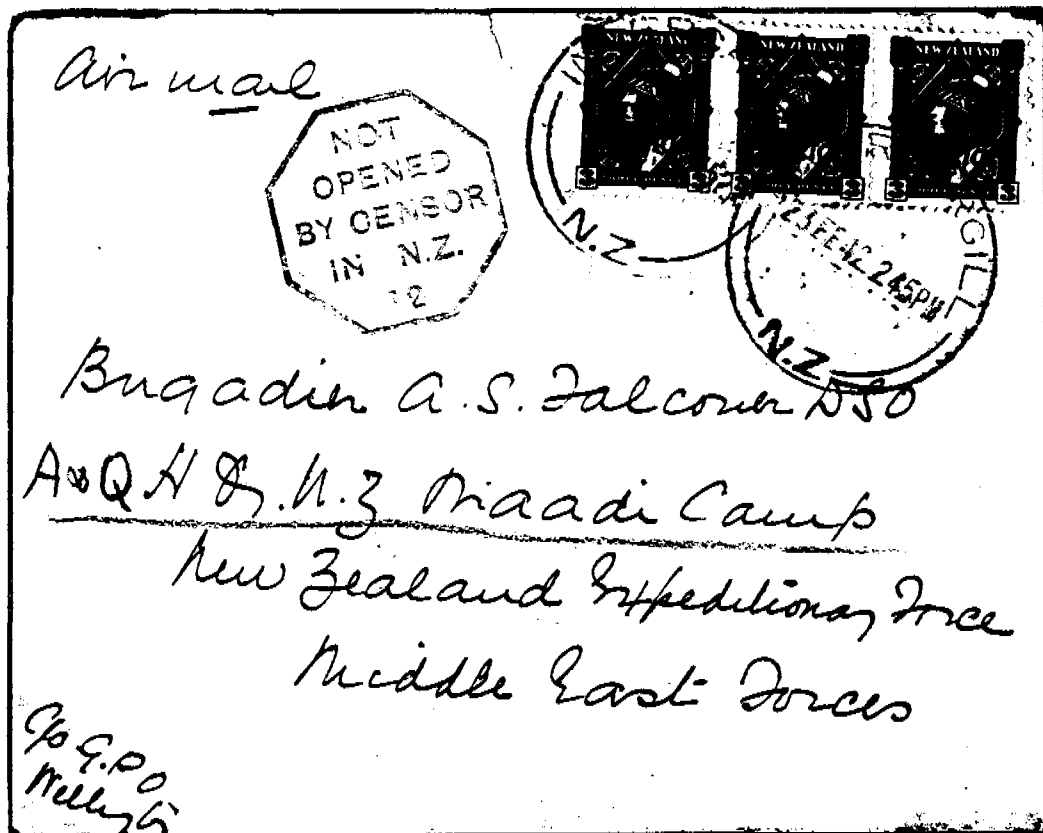 Air mail
NOT
OPENED
BY CENSOR
IN N.Z.
12
NEW ZEALAND
NEW ZEALAND
NEW ZEALAND
N.Z.
GILL
23 FE 42 245PM
N.Z.
Brigadier A.S. Falconer DSO
A & Q H Q. N.Z Maadi Camp
New Zealand Expeditionary Force
Middle East Forces
c/o G.P.O
Wellington